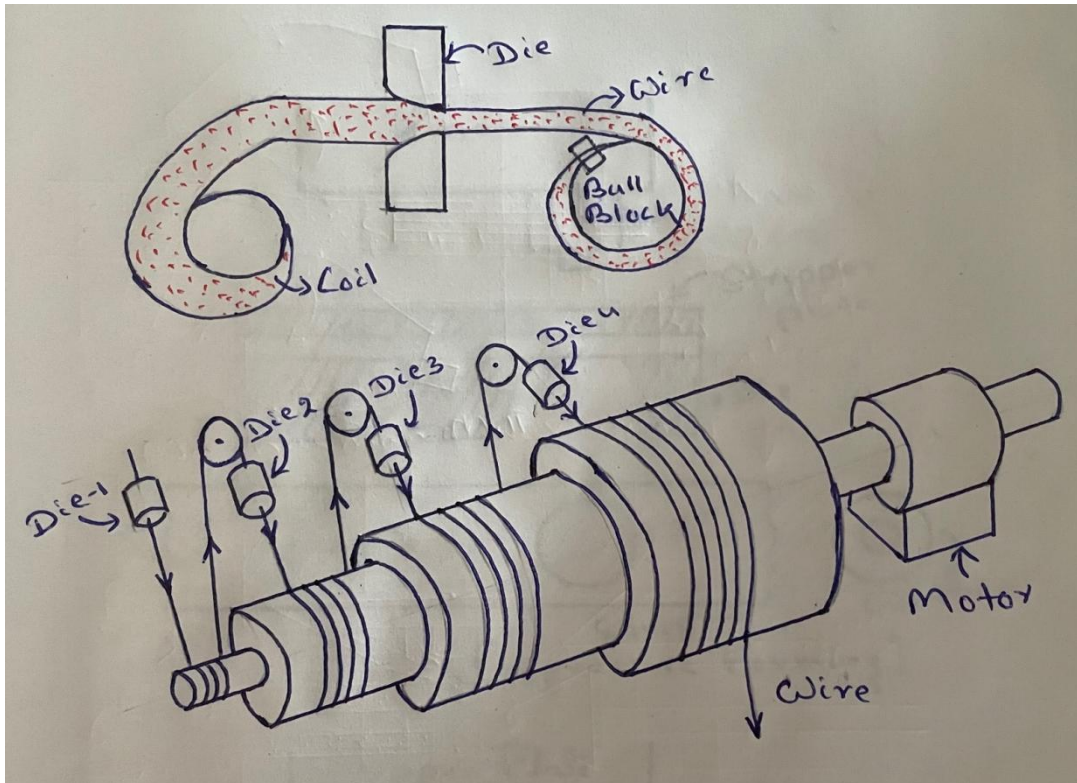 Die
Wire
Bull
Block
Coil
Die4
Die3
Die2
Die-1
Motor
Wire